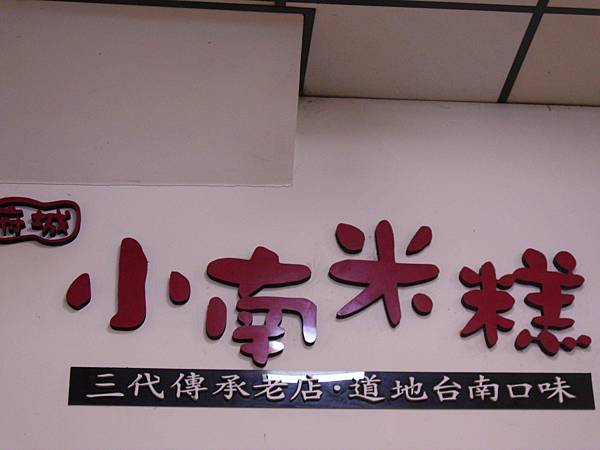 小南米糕
三代傳承老店·道地台南口味